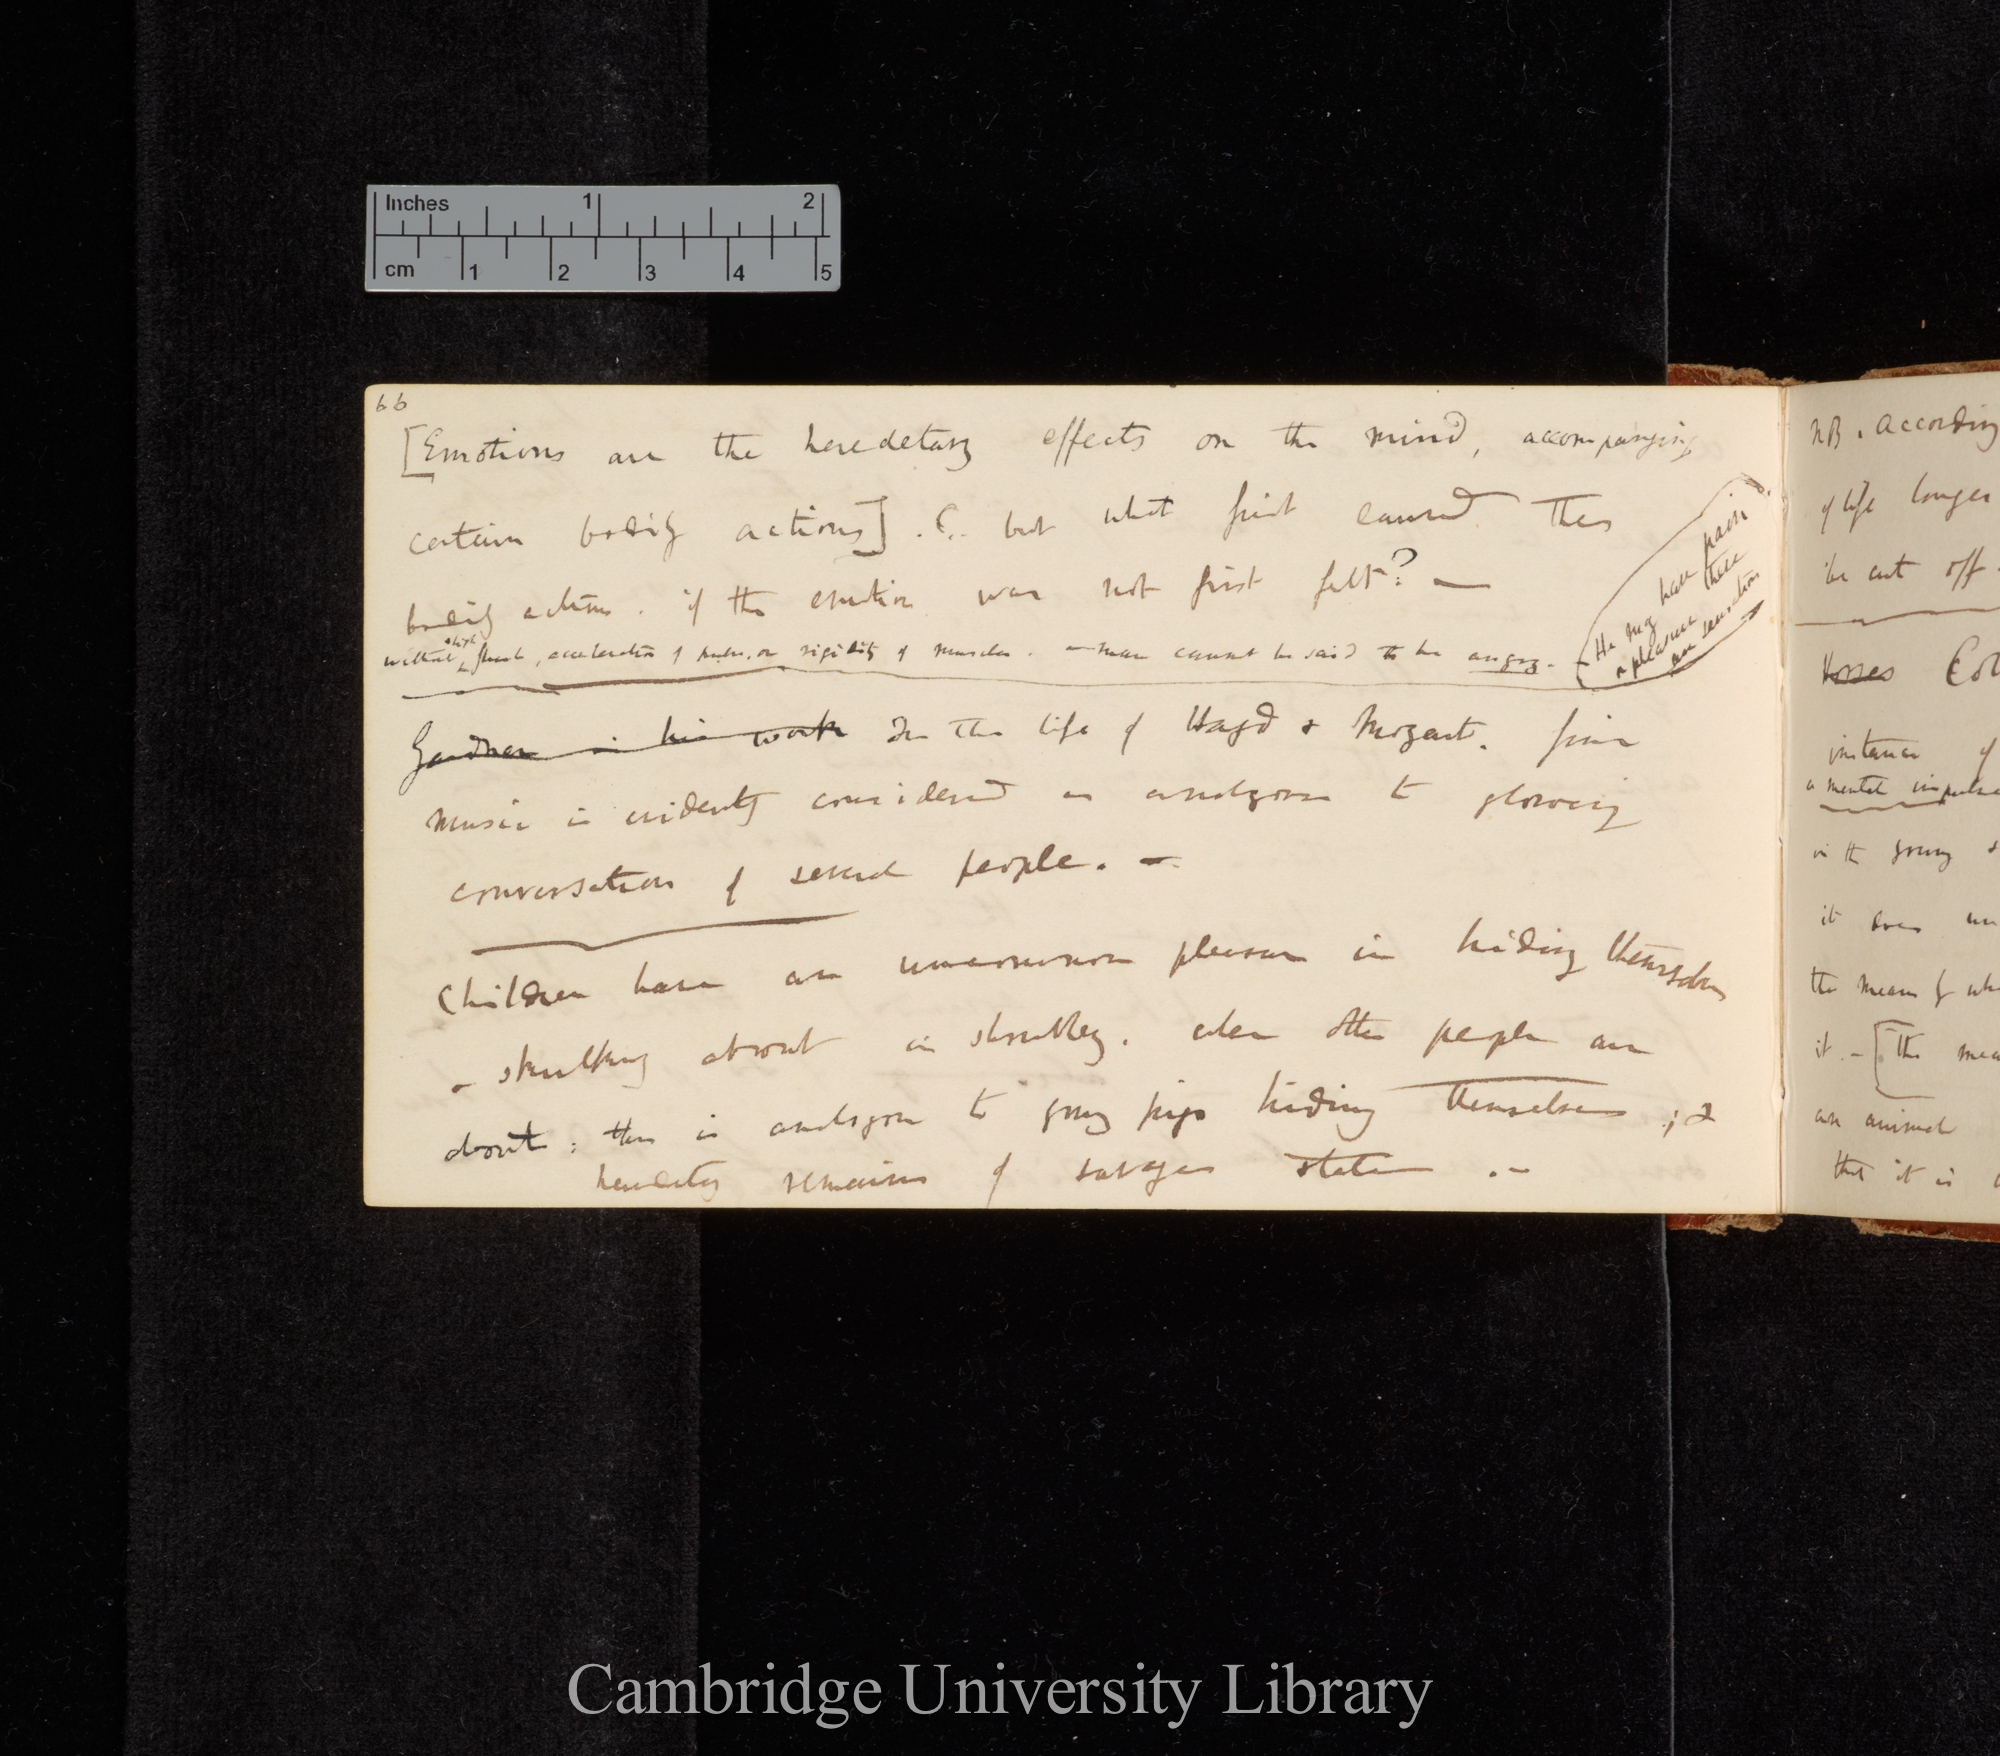 Inches 1 2
cm 1 2 3 4 5
66
[Emotions are the heredetary effects on the mind, accompanying
certain bodily actions]. but what first caused this
bodily action. if the emotion was not first felt? —
without slight flush, acceleration of pulse, or rigidity of muscles. — man cannot be said to be angry. —
He may have pain
or pleasure these
are sensations
Gardner in his work In the life of Haydn & Mozart. fine
music is evidently considered as analogous to glowing
conversation of several people. —
Children have an uncommon pleasure in hiding themselves
& skulking about in shrubbery. when other people are
about: this is analogous to young pigs hiding themselves; &
hereditary remains of savages state. —
NB. According
of life longer
be cut off
Horses
instance of
a mental impulse
in the young &
it does
the means by
it. — [The
an animal
that it is
Cambridge University Library